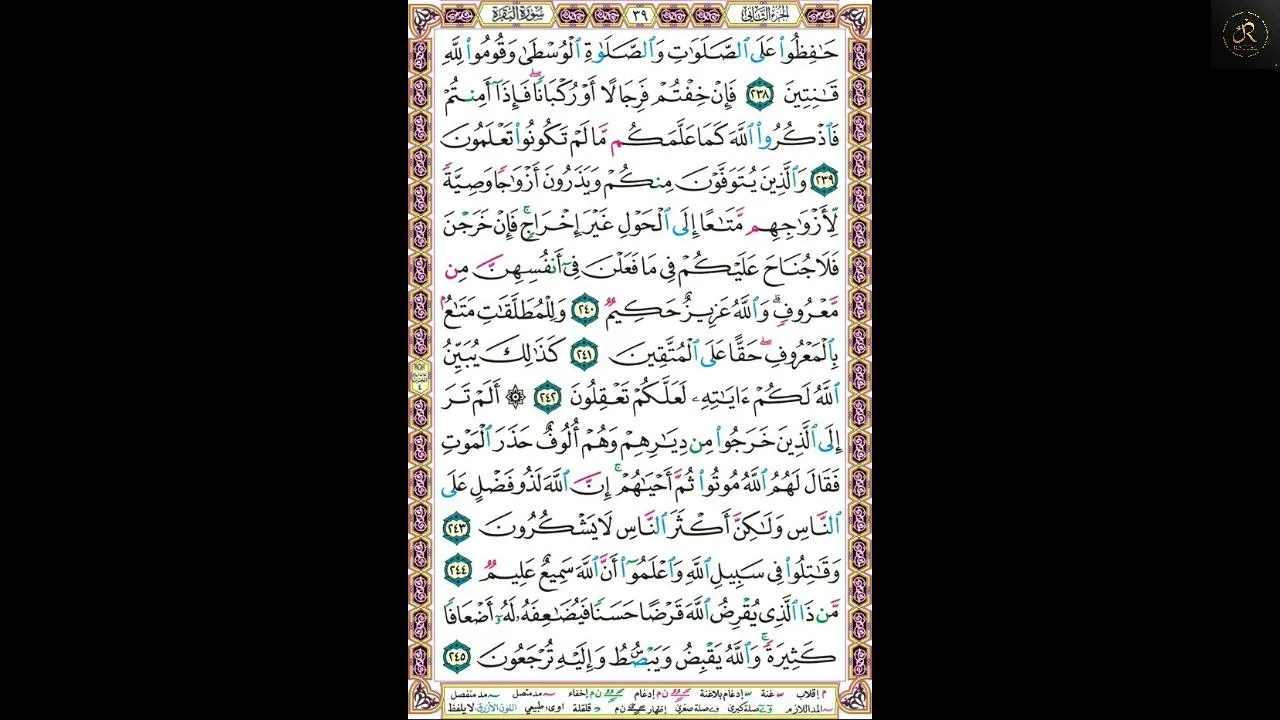 الجزء الثاني
٣٩
سورة البقرة
حَـٰفِظُوا۟ عَلَى ٱلصَّلَوَٰتِ وَٱلصَّلَوٰةِ ٱلْوُسْطَىٰ وَقُومُوا۟ لِلَّهِ
قَـٰنِتِينَ ٢٣٨ فَإِنْ خِفْتُمْ فَرِجَالًا أَوْ رُكْبَانًا ۖ فَإِذَآ أَمِنتُمْ
فَٱذْكُرُوا۟ ٱللَّهَ كَمَا عَلَّمَكُم مَّا لَمْ تَكُونُوا۟ تَعْلَمُونَ
٢٣٩ وَٱلَّذِينَ يُتَوَفَّوْنَ مِنكُمْ وَيَذَرُونَ أَزْوَٰجًا وَصِيَّةً
لِّأَزْوَٰجِهِم مَّتَـٰعًا إِلَى ٱلْحَوْلِ غَيْرَ إِخْرَاجٍ ۚ فَإِنْ خَرَجْنَ
فَلَا جُنَاحَ عَلَيْكُمْ فِى مَا فَعَلْنَ فِىٓ أَنفُسِهِنَّ مِن
مَّعْرُوفٍ ۗ وَٱللَّهُ عَزِيزٌ حَكِيمٌ ٢٤٠ وَلِلْمُطَلَّقَـٰتِ مَتَـٰعٌۢ
بِٱلْمَعْرُوفِ ۖ حَقًّا عَلَى ٱلْمُتَّقِينَ ٢٤١ كَذَٰلِكَ يُبَيِّنُ
ٱللَّهُ لَكُمْ ءَايَـٰتِهِۦ لَعَلَّكُمْ تَعْقِلُونَ ٢٤٢ ۞ أَلَمْ تَرَ
إِلَى ٱلَّذِينَ خَرَجُوا۟ مِن دِيَـٰرِهِمْ وَهُمْ أُلُوفٌ حَذَرَ ٱلْمَوْتِ
فَقَالَ لَهُمُ ٱللَّهُ مُوتُوا۟ ثُمَّ أَحْيَـٰهُمْ ۚ إِنَّ ٱللَّهَ لَذُو فَضْلٍ عَلَى
ٱلنَّاسِ وَلَـٰكِنَّ أَكْثَرَ ٱلنَّاسِ لَا يَشْكُرُونَ ٢٤٣
وَقَـٰتِلُوا۟ فِى سَبِيلِ ٱللَّهِ وَٱعْلَمُوٓا۟ أَنَّ ٱللَّهَ سَمِيعٌ عَلِيمٌ ٢٤٤
مَّن ذَا ٱلَّذِى يُقْرِضُ ٱللَّهَ قَرْضًا حَسَنًا فَيُضَـٰعِفَهُۥ لَهُۥٓ أَضْعَافًا
كَثِيرَةً ۚ وَٱللَّهُ يَقْبِضُ وَيَبْصُۜطُ وَإِلَيْهِ تُرْجَعُونَ ٢٤٥
م إقلاب غنة إدغام بلاغنة ن م إدغام ن م إخفاء مد متصل مد منفصل
المد اللازم صلة كبرى صلة صغرى إظهار ن م قلقلة اوى طبيعي اللون الأزرق لا يلفظ